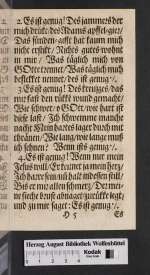 2. Es ist genug! Des jammers der
mich drückt: des Adams apffel-gier/
Das sünden-gifft hat kaum mich
nicht erstickt/ Nichts gutes wohnt
in mir/ Was täglich mich von
GOtt trennet/ Was täglich mich
beflecket nennet/ des ist genug!
3. Es ist genug! Des kreutzes/ das
mir fast den rükk wund gemacht
Wie schwer/ o GOtt, wie hart ist
diese last/ Ich schwemme manche
nacht Mein hartes lager durch mit
thränen/ Wie lang/ wie lange muß
ich sehnen? Wenn ists genug?
4. Es ist genug! Wenn nur mein
Jesus will/ Er kennet ja mein hertz/
Ich harre sein und halt indessen still/
Bis er mir allen schmertz/ Der mei-
ne sieche brust abnaget/ zurükke legt/
und zu mir saget: Es ist genug!
D 5
Es
Herzog August Bibliothek Wolfenbüttel
Kodak